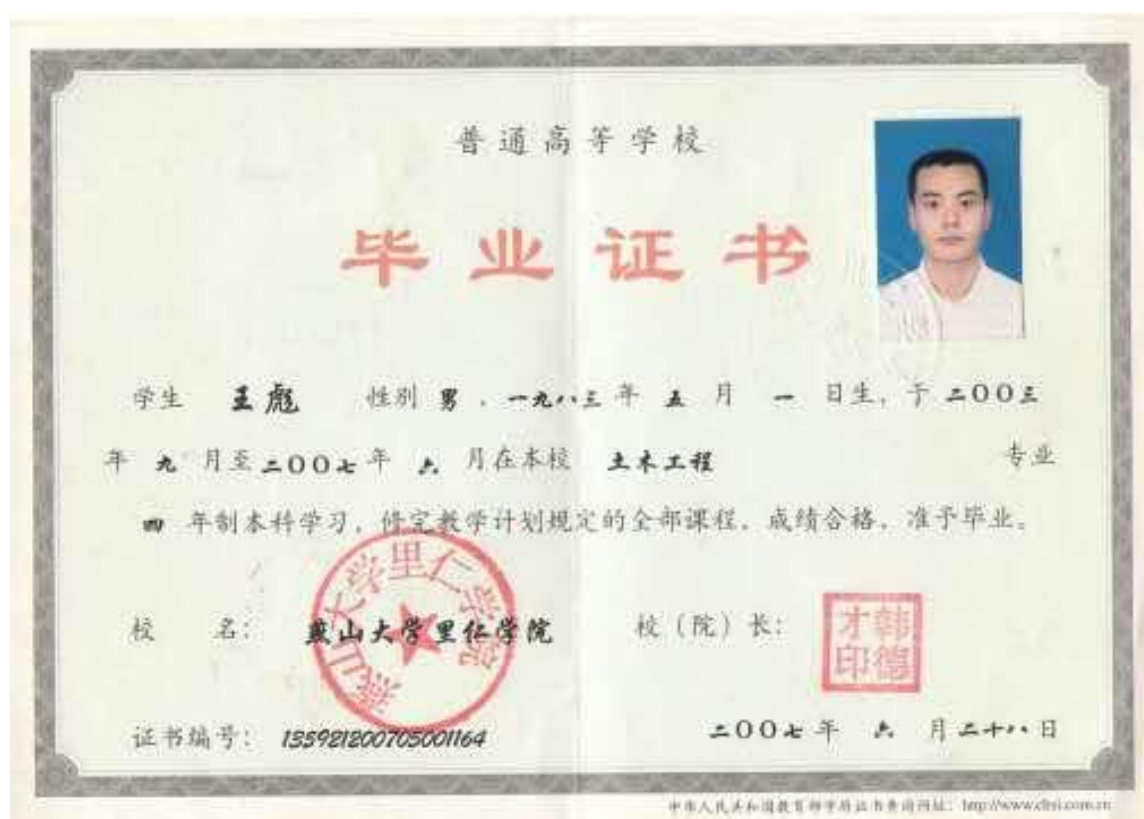 普通高等学校
毕业证书
学生 王彪 性别 男，一九八三年 五 月 一 日生，于二00三
年 九 月至二00七年 六 月在本校 土木工程 专业
四 年制本科学习，修完教学计划规定的全部课程，成绩合格，准予毕业。
燕山大学里仁学院
校 名： 燕山大学里仁学院 校（院）长： 韩德才印
证书编号： 133921200705001164 二00七年 六 月二十八日
中华人民共和国教育部学历证书查询网址：http://www.chsi.com.cn